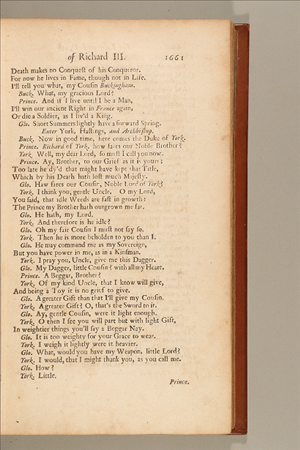 of Richard III. 1661
Death makes no Conquest of his Conqueror,
For now he lives in Fame, though not in Life.
I'll tell you what, my Cousin Buckingham.
Buck. What, my gracious Lord?
Prince. And if I live until I be a Man,
I'll win our ancient Right in France again,
Or die a Soldier, as I liv'd a King.
Glo. Short Summers lightly have a forward Spring.
Enter York, Hastings, and Archbishop.
Buck. Now in good time, here comes the Duke of York.
Prince. Richard of York, how fares our Noble Brother?
York. Well, my dear Lord, so must I call you now.
Prince. Ay, Brother, to our Grief as it is yours:
Too late he dy'd that might have kept that Title,
Which by his Death hath lost much Majesty.
Glo. How fares our Cousin, Noble Lord of York?
York. I thank you, gentle Uncle. O my Lord,
You said, that idle Weeds are fast in growth:
The Prince my Brother hath outgrown me far.
Glo. He hath, my Lord.
York. And therefore is he idle?
Glo. Oh my fair Cousin I must not say so.
York. Then he is more beholden to you than I.
Glo. He may command me as my Sovereign,
But you have power in me, as in a Kinsman.
York. I pray you, Uncle, give me this Dagger.
Glo. My Dagger, little Cousin? with all my Heart.
Prince. A Beggar, Brother?
York. Of my kind Uncle, that I know will give,
And being a Toy it is no grief to give.
Glo. A greater Gift than that I'll give my Cousin.
York. A greater Gift? O, that's the Sword to it.
Glo. Ay, gentle Cousin, were it light enough.
York. O then I see you will part but with light Gift,
In weightier things you'll say a Beggar Nay.
Glo. It is too weighty for your Grace to wear.
York. I weigh it lightly were it heavier.
Glo. What, would you have my Weapon, little Lord?
York. I would, that I might thank you, as you call me.
Glo. How?
York. Little.
Prince.